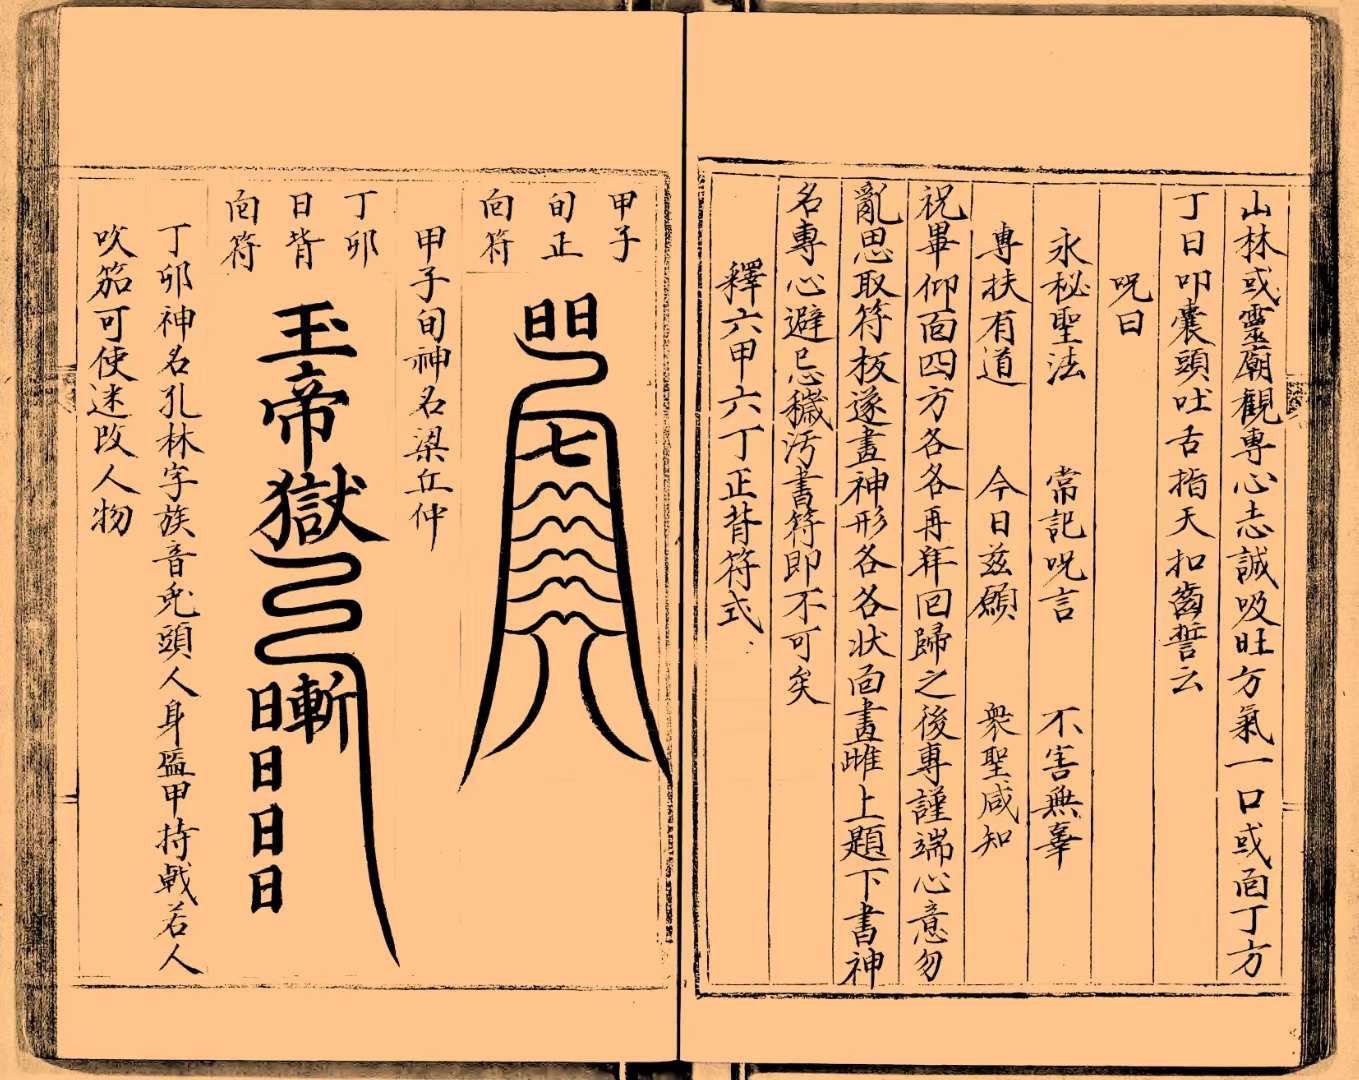 山林或靈廟觀專心志誠吸旺方氣一口或面丁方
丁日叩囊頭吐舌指天扣齒誓云
呪曰
永秘聖法 常記呪言 不害無辜
專扶有道 今日茲願 衆聖咸知
祝畢仰面四方各各再拜回歸之後專謹端心意勿
亂思取符板遂畫神形各各狀面畫雌上題下書神
名專心避忌穢汚書符即不可矣
釋六甲六丁正背符式
甲子
旬正
面符
甲子旬神名梁丘仲
丁卯
日背
面符
玉帝獄
斬
日日日日
丁卯神名孔林字族音兎頭人身盔甲持戟若人
吹笳可使迷改人物